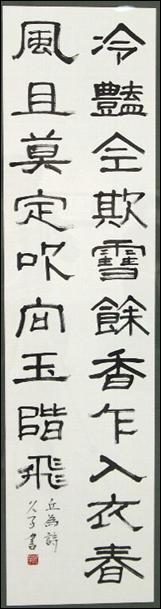 冷豔全欺雪餘香乍入衣春
風且莫定吹向玉階飛
丘為詩
久子書